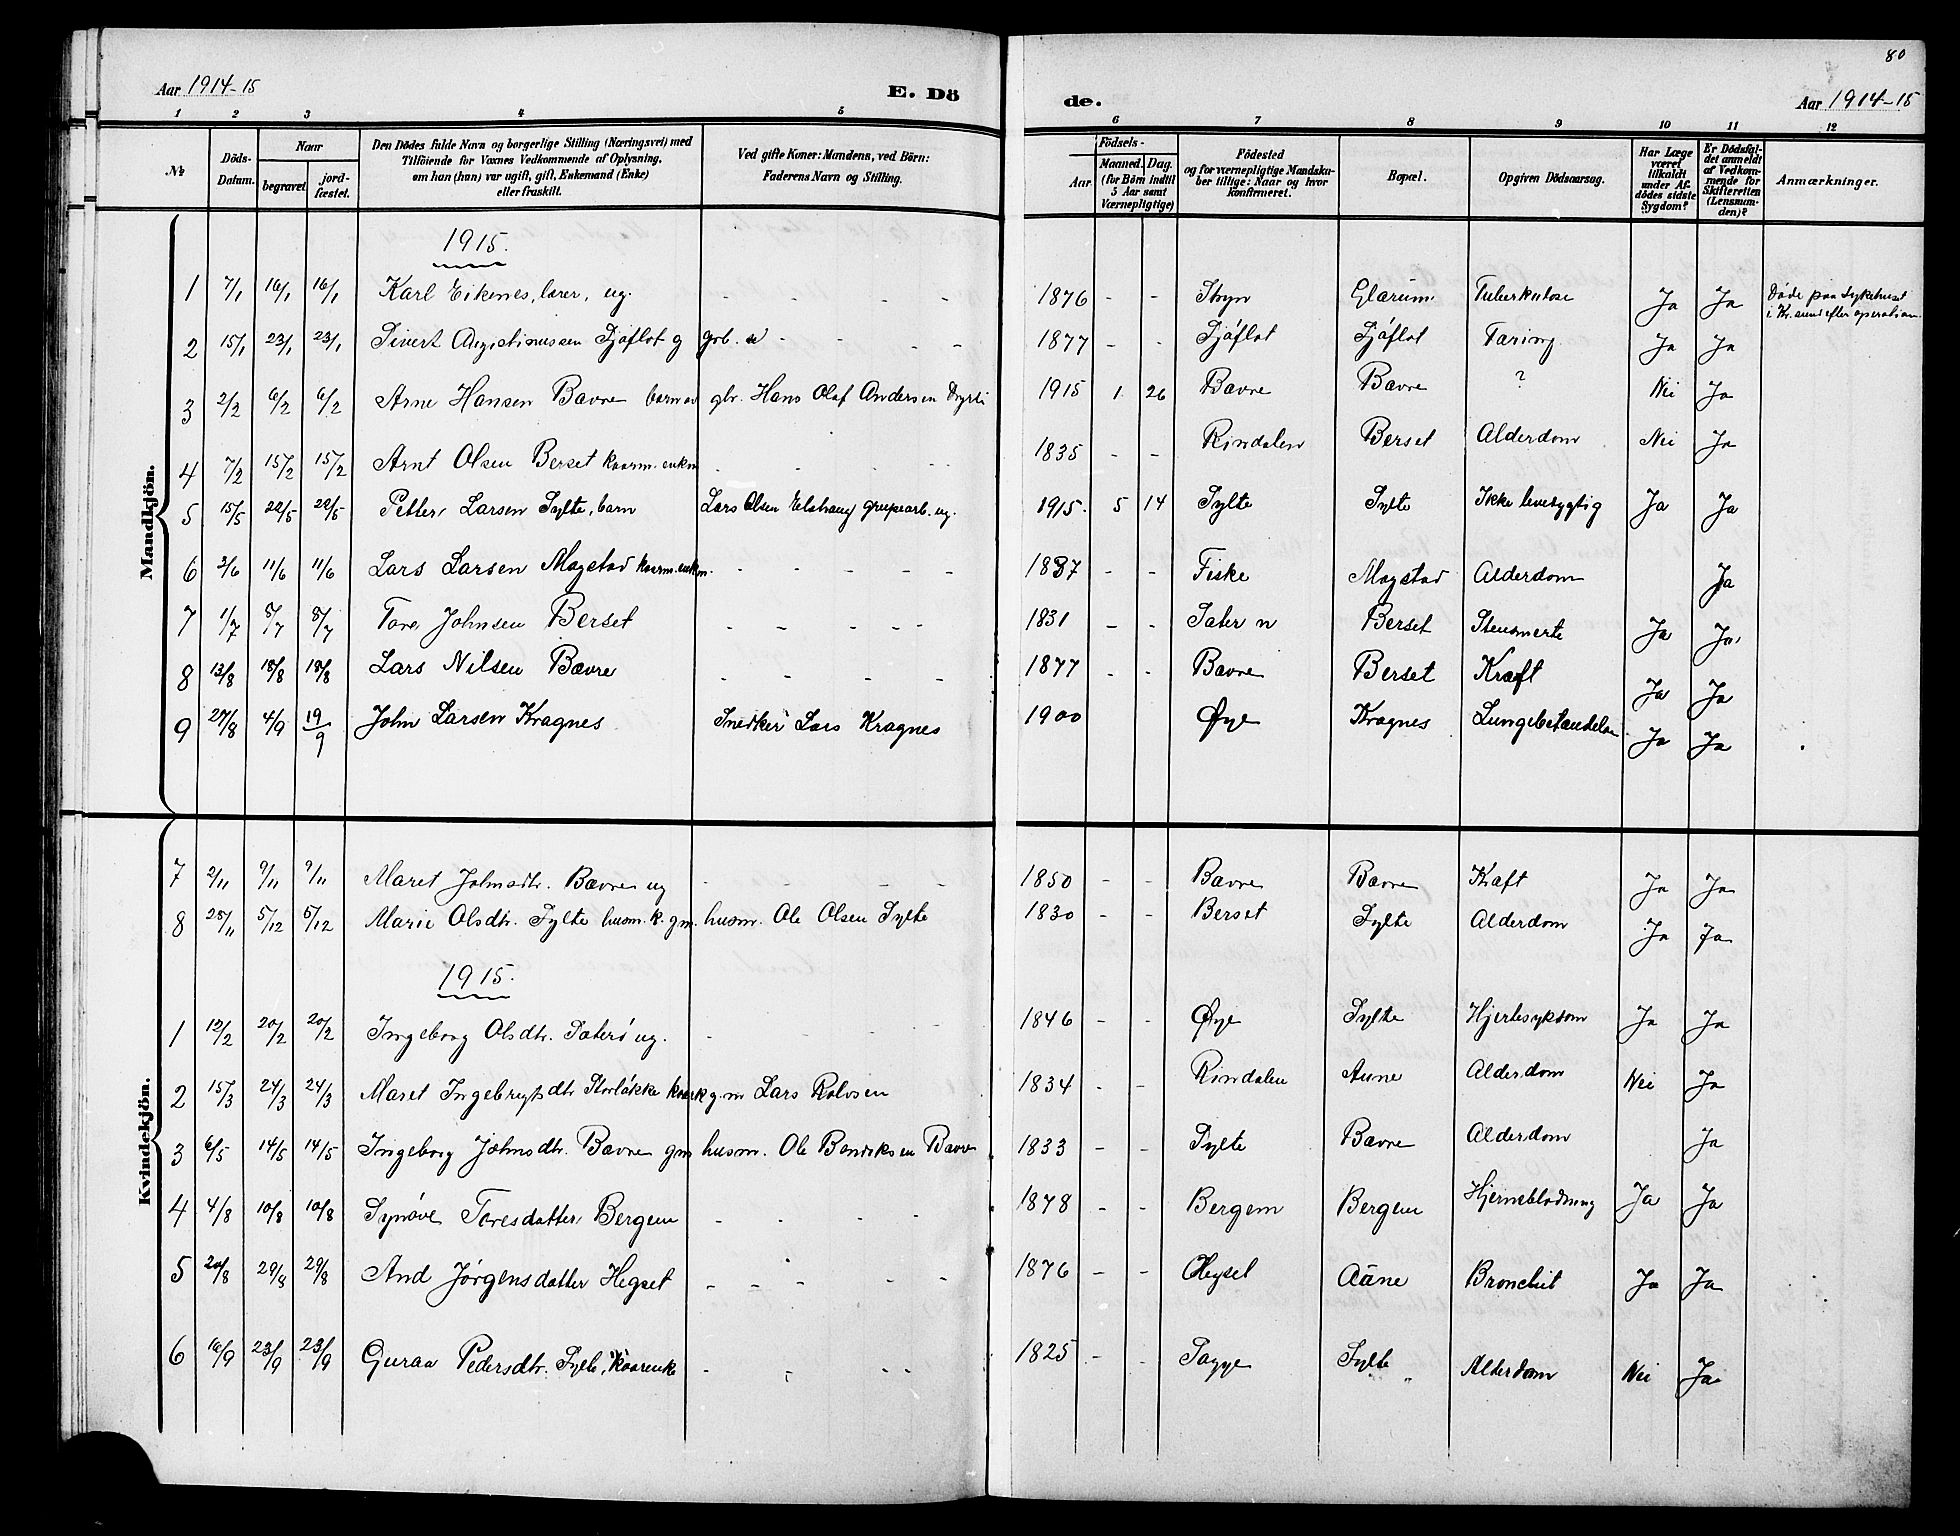 80
Aar 1914-15 E. Dö de. Aar 1914-15
1 2 3 4 5 6 7 8 9 10 11 12
№ Döds-Datum. Naar begravet jord-fæstet. Den Dödes fulde Navn og borgerlige Stilling (Næringsvei) med Tilföiende for Voxnes Vedkommende af Oplysning, om han (hun) var ugift, gift, Enkemand (Enke) eller fraskilt. Ved gifte Koner: Mandens, ved Börn: Faderens Navn og Stilling. Födsels- Aar Maaned. Dag. (for Börn indtil 5 Aar samt Værnepligtige) Födested og for værnepligtige Mandskaber tillige: Naar og hvor konfirmeret. Bopæl. Opgiven Dödsaarsag. Har Læge været tilkaldt under Afdödes sidste Sygdom? Er Dödsfaldet anmeldt af Vedkommende for Skifteretten (Lensmanden)? Anmærkninger.
Mandkjön.
1915.
1 7/1 16/1 16/1 Karl Eikenes, lærer, ug. - - - - 1876 - - Stryn Glærum Tuberkulose Ja Ja Døde paa sykehuset i Kr.sund efter operation
2 15/1 23/1 23/1 Sivert Sjøflot g grb. - - - 1877 - - Sjøflot Sjøflot Tæring Ja Ja
3 2/2 6/2 6/2 Arne Hansen Bævre barn av gbr. Hans Olaf Andersen 1915 1 26 Bævre Bævre ? Nei Ja
4 7/2 15/2 15/2 Arnt Olsen Berset kaarm. enkm - - - - 1835 - - Rindalen Berset Alderdom Nei Ja
5 15/5 22/5 22/5 Petter Larsen Sylte, barn Lars Olsen ug. 1915. 5 14 Sylte Sylte Ikke levedygtig Ja Ja
6 2/6 11/6 11/6 Lars Larsen Mogstad kaarm. enkm. - - - - - 1837 - - Fiske Mogstad Alderdom Ja
7 1/7 8/7 8/7 Tore Johnsen Berset - - - - - 1831 - - Sæter n Berset Stensmerte Ja Ja
8 13/8 18/8 18/8 Lars Nilsen Bævre - - - - 1877 - - Bævre Berset Kræft Ja Ja
9 27/8 4/9 19/9 John Larsen Kragnes Snedker Lars Kragnes 1900 Øye Kragnes Lungebetændelse Ja Ja
Kvindekjön.
7 2/11 9/11 9/11 Maret Johnsdtr. Bævre ug - - - - - 1850 - - Bævre Bævre Kræft Ja Ja
8 28/11 5/12 5/12 Marie Olsdtr. Sylte husm. k. gm. husm. Ole Olsen Sylte 1830 - - Berset Sylte Alderdom Ja Ja
1915.
1 12/2 20/2 20/2 Ingeborg Olsdtr. Sæterø ug. - - - - 1846 - - Øye Sylte Hjertesykdom Ja Ja
2 15/3 24/3 24/3 Maret Ingebrigtsdtr Storløkke kaark g.m Lars Rolvsen 1834 - - Rindalen Aune Alderdom Nei Ja
3 6/5 14/5 14/5 Ingeborg Johnsdtr. Bævre gm husm. Ole Bendiksen Bævre 1833 - - Sylte Bævre Alderdom Ja
4 4/8 10/8 10/8 Synøve Toresdatter Bergem - - - - 1878 - - Bergem Bergem Hjerneblødning Ja Ja
5 20/8 29/8 29/8 And Jørgensdatter Hegset - - - - - 1876 - - Hegset Aane Bronchit Ja Ja
6 10/9 23/9 23/9 Guraa Pedersdtr. Sylte, kaarenke - - - - 1825 - - Sagge Sylte Alderdom Nei Ja